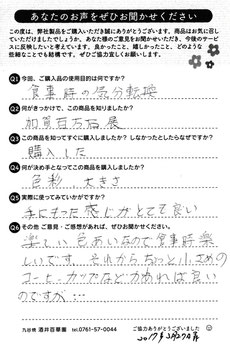 あなたのお声をぜひお聞かせください
この度は、弊社製品をご購入いただき誠にありがとうございます。商品はお気に召し
ていただけましたでしょうか。あなた様のご意見をお聞かせいただき、今後のサービ
スに反映したいと考えています。良かったこと、嬉しかったこと、どのような
些細なことでも結構です。ぜひご協力宜しくお願いします。
Q1 今回、ご購入品の使用目的は何ですか?
食事時の気分転換
Q2 何がきっかけで、この商品を知りましたか?
加賀百万石展
Q3 この商品を知ってすぐに購入しましたか? しなかったとしたらなぜですか?
購入した
Q4 何が決め手となってこの商品を購入しましたか?
色彩、大きさ
Q5 実際に使ってみていかがですか?
手にもった感じがとても良い
Q6 その他 ご意見・ご感想があれば、ぜひお聞かせください。
楽しい色あいなので食事時楽
しいです。それからちょっと小さめの
コーヒーカップなどがあれば良い
のですが…
九谷焼 酒井百華園 tel.0761-57-0044
ご協力ありがとうございました
2017年